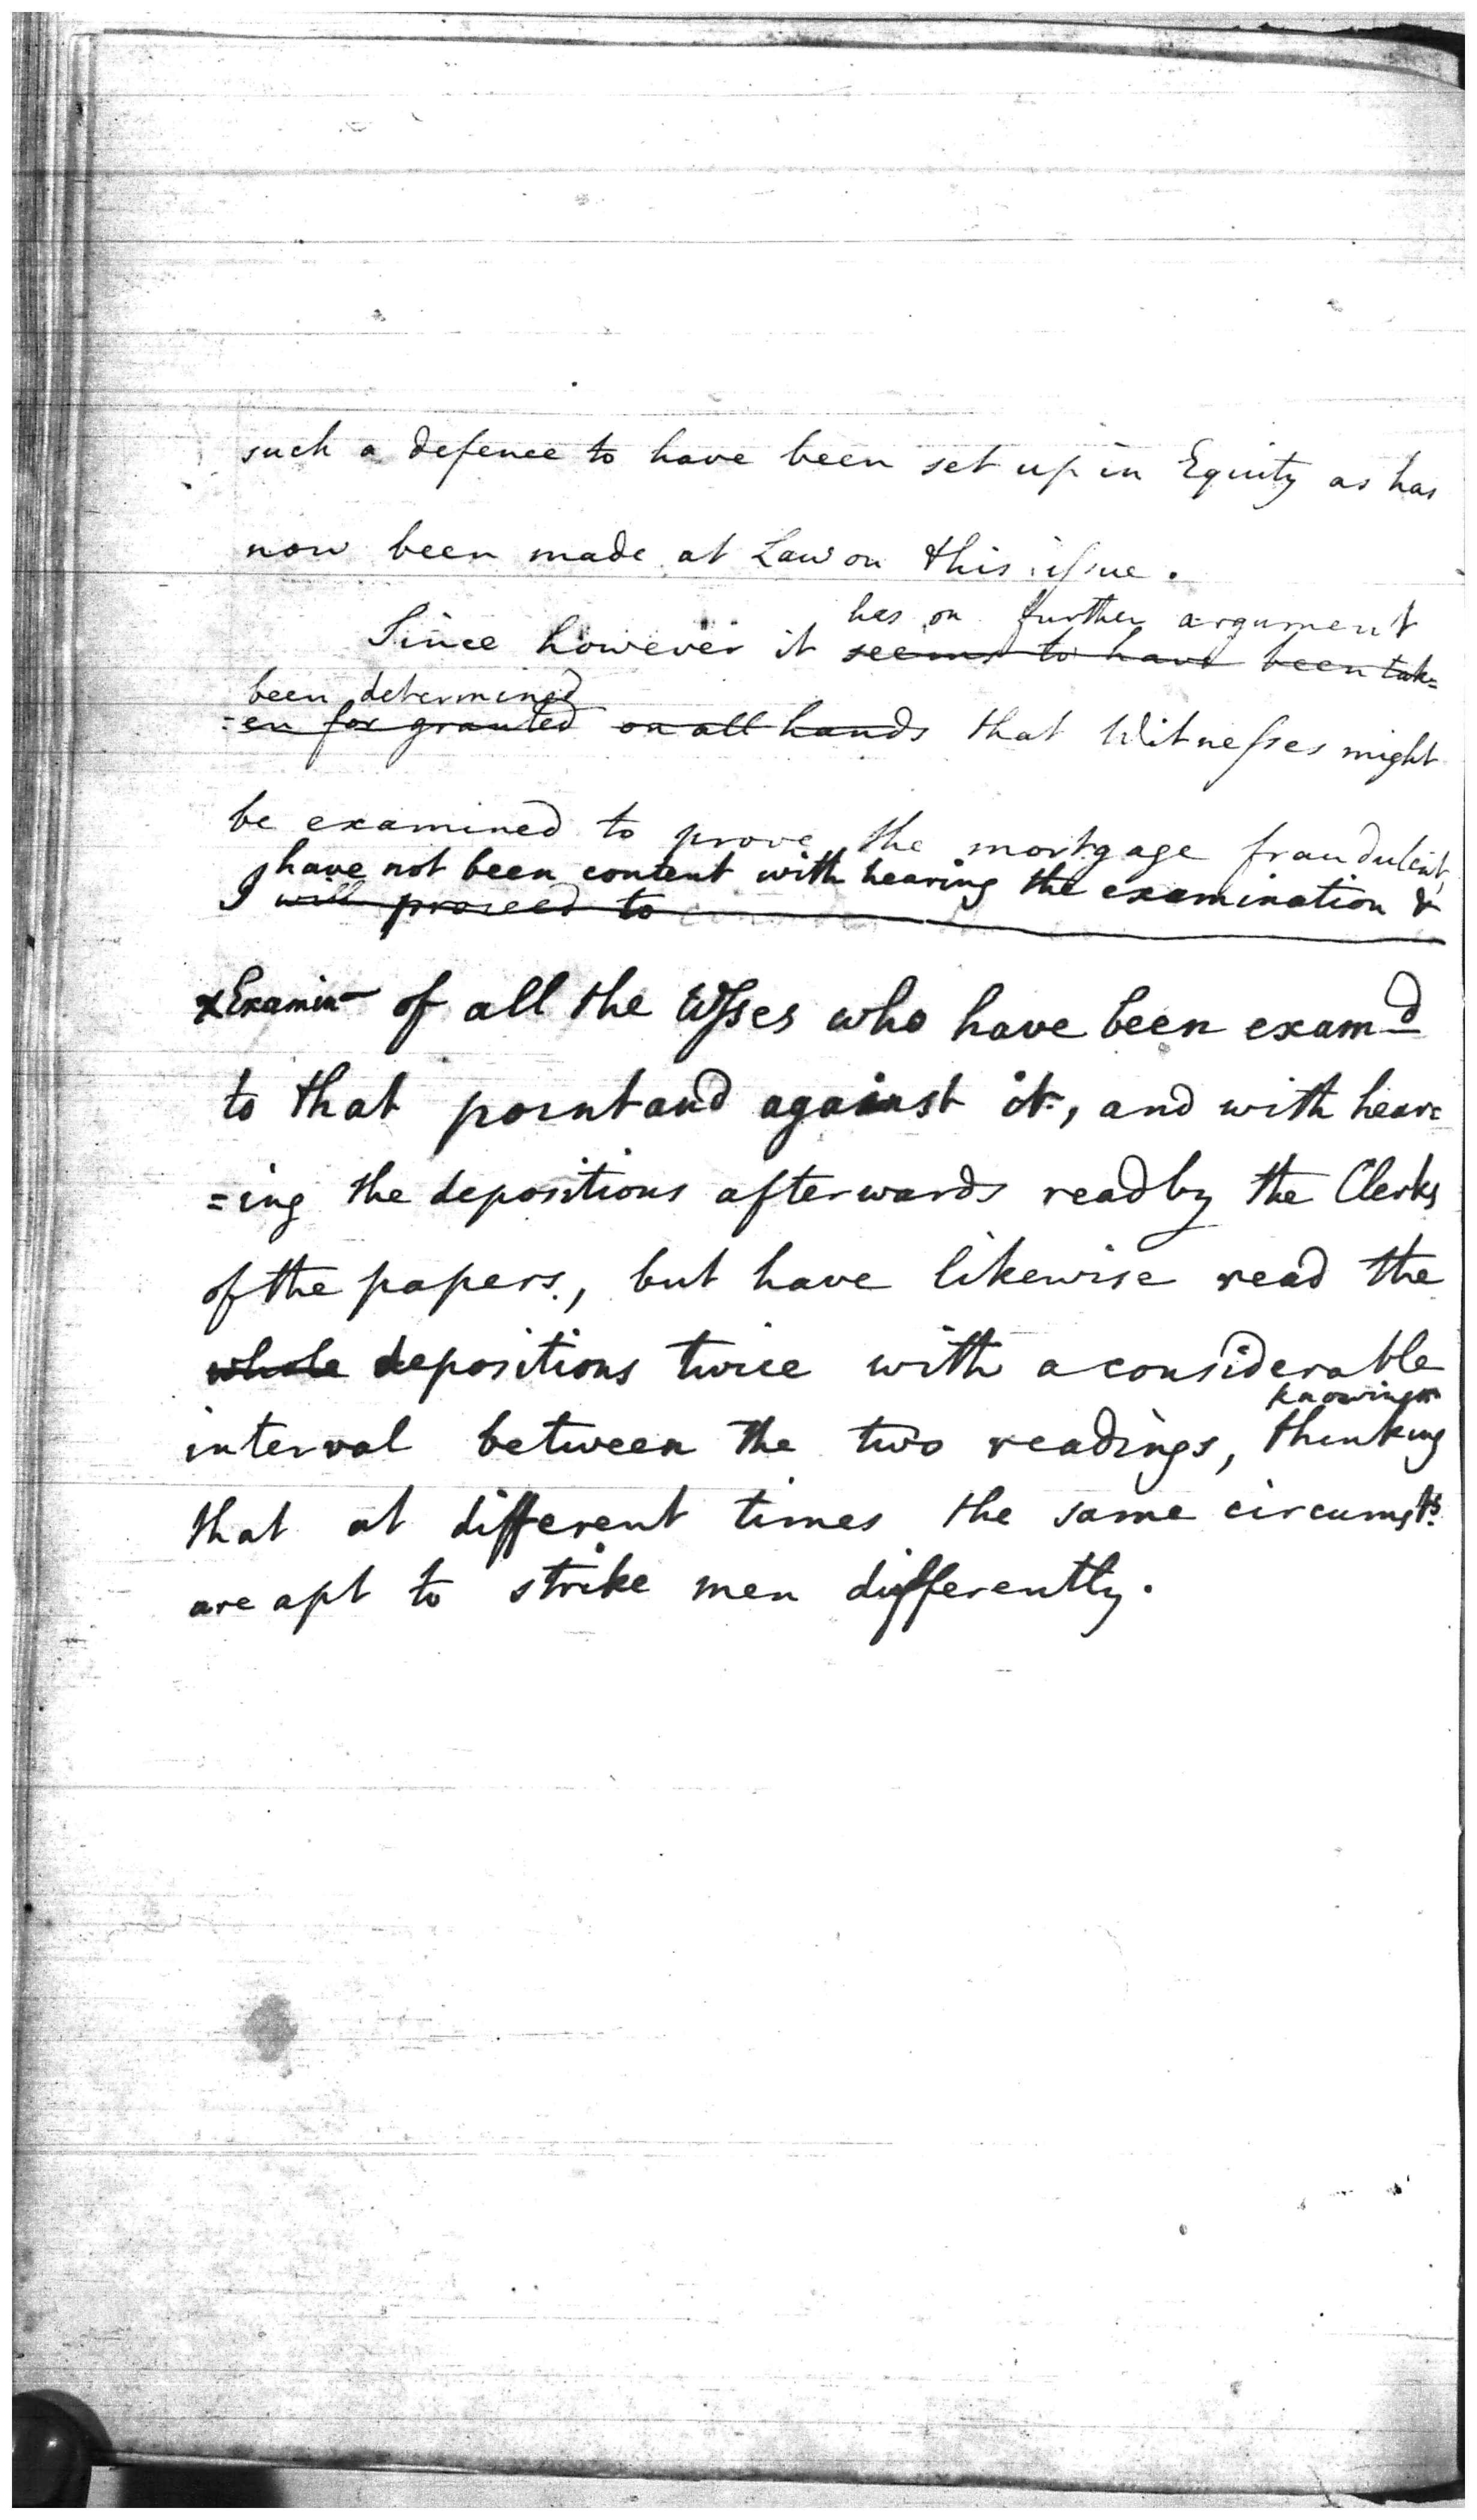 such a defence to have been set up in Equity as has
now been made at Law on this issue.
has on further argument
Since however it seems to have been tak=
been determined
=en for granted on all hands that Witnesses might
be examined to prove the mortgage fraudulent,
have not been content with hearing the examination &
I will proceed to
xExamin of all the Wsses who have been examd
to that point and against it, and with hear=
=ing the depositions afterwards read by the Clerks
of the papers, but have likewise read the
whole depositions twice with a considerable
knowing or
interval between the two readings, thinking
that at different times the same circumsts.
are apt to strike men differently.